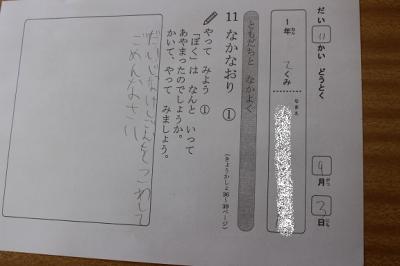 だい 11 かい どうとく
4 月 3 日
1年 2くみ
なまえ
ともだちと なかよく
11 なかなおり ①
(きょうかしょ36〜39ページ)
やって みよう ①
「ぼく」は なんと いって
あやまったのでしょうか。
かいて、やって みましょう。
だいじな
こわして
ごめんなさい